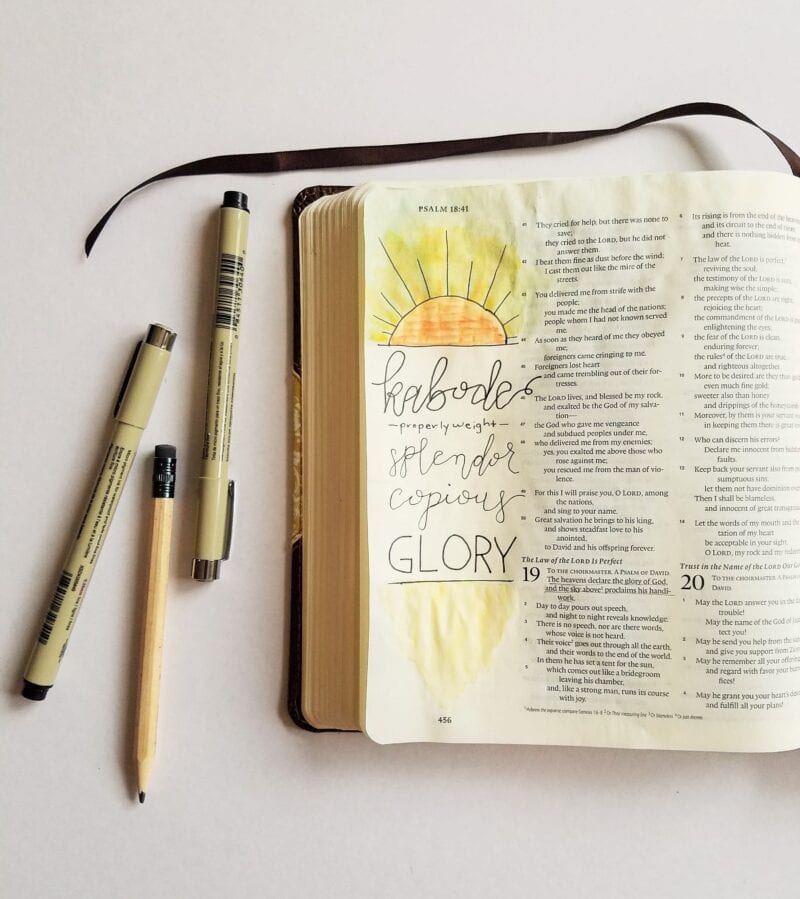 PSALM 18:41
kabode
—properly weight—
splendor
copious
GLORY
456
41 They cried for help, but there was none to
save;
they cried to the LORD, but he did not
answer them.
42 I beat them fine as dust before the wind;
I cast them out like the mire of the
streets.
43 You delivered me from strife with the
people;
you made me the head of the nations;
people whom I had not known served
me.
44 As soon as they heard of me they obeyed
me;
foreigners came cringing to me.
45 Foreigners lost heart
and came trembling out of their for-
tresses.
46 The LORD lives, and blessed be my rock,
and exalted be the God of my salva-
tion—
47 the God who gave me vengeance
and subdued peoples under me,
48 who delivered me from my enemies;
yes, you exalted me above those who
rose against me;
you rescued me from the man of vio-
lence.
49 For this I will praise you, O LORD, among
the nations,
and sing to your name.
50 Great salvation he brings to his king,
and shows steadfast love to his
anointed,
to David and his offspring forever.
The Law of the LORD Is Perfect
19 TO THE CHOIRMASTER. A PSALM OF DAVID.
The heavens declare the glory of God,
and the sky above¹ proclaims his handi-
work.
2 Day to day pours out speech,
and night to night reveals knowledge.
3 There is no speech, nor are there words,
whose voice is not heard.
4 Their voice² goes out through all the earth,
and their words to the end of the world.
In them he has set a tent for the sun,
5 which comes out like a bridegroom
leaving his chamber,
and, like a strong man, runs its course
with joy.
6 Its rising is from the end of the
and its circuit to the end of
and there is nothing hidden
heat.
7 The law of the LORD is perfect,
reviving the soul;
the testimony of the LORD is sure,
making wise the simple;
8 the precepts of the LORD are right,
rejoicing the heart;
the commandment of the LORD is
enlightening the eyes;
9 the fear of the LORD is clean,
enduring forever;
the rules⁴ of the LORD are true,
and righteous altogether.
10 More to be desired are they than
even much fine gold;
sweeter also than honey
and drippings of the honeycomb.
11 Moreover, by them is your servant
in keeping them there is great
12 Who can discern his errors?
Declare me innocent from hidden
faults.
13 Keep back your servant also from
sumptuous sins;
let them not have dominion over
Then I shall be blameless,
and innocent of great
14 Let the words of my mouth and the
tation of my heart
be acceptable in your sight,
O LORD, my rock and my
Trust in the Name of the LORD Our
20 TO THE CHOIRMASTER. A PSALM
DAVID.
1 May the LORD answer you in the
trouble!
May the name of the God of
tect you!
2 May he send you help from the
and give you support from
3 May he remember all your
and regard with favor your
fices!
4 May he grant you your heart's
and fulfill all your plans!